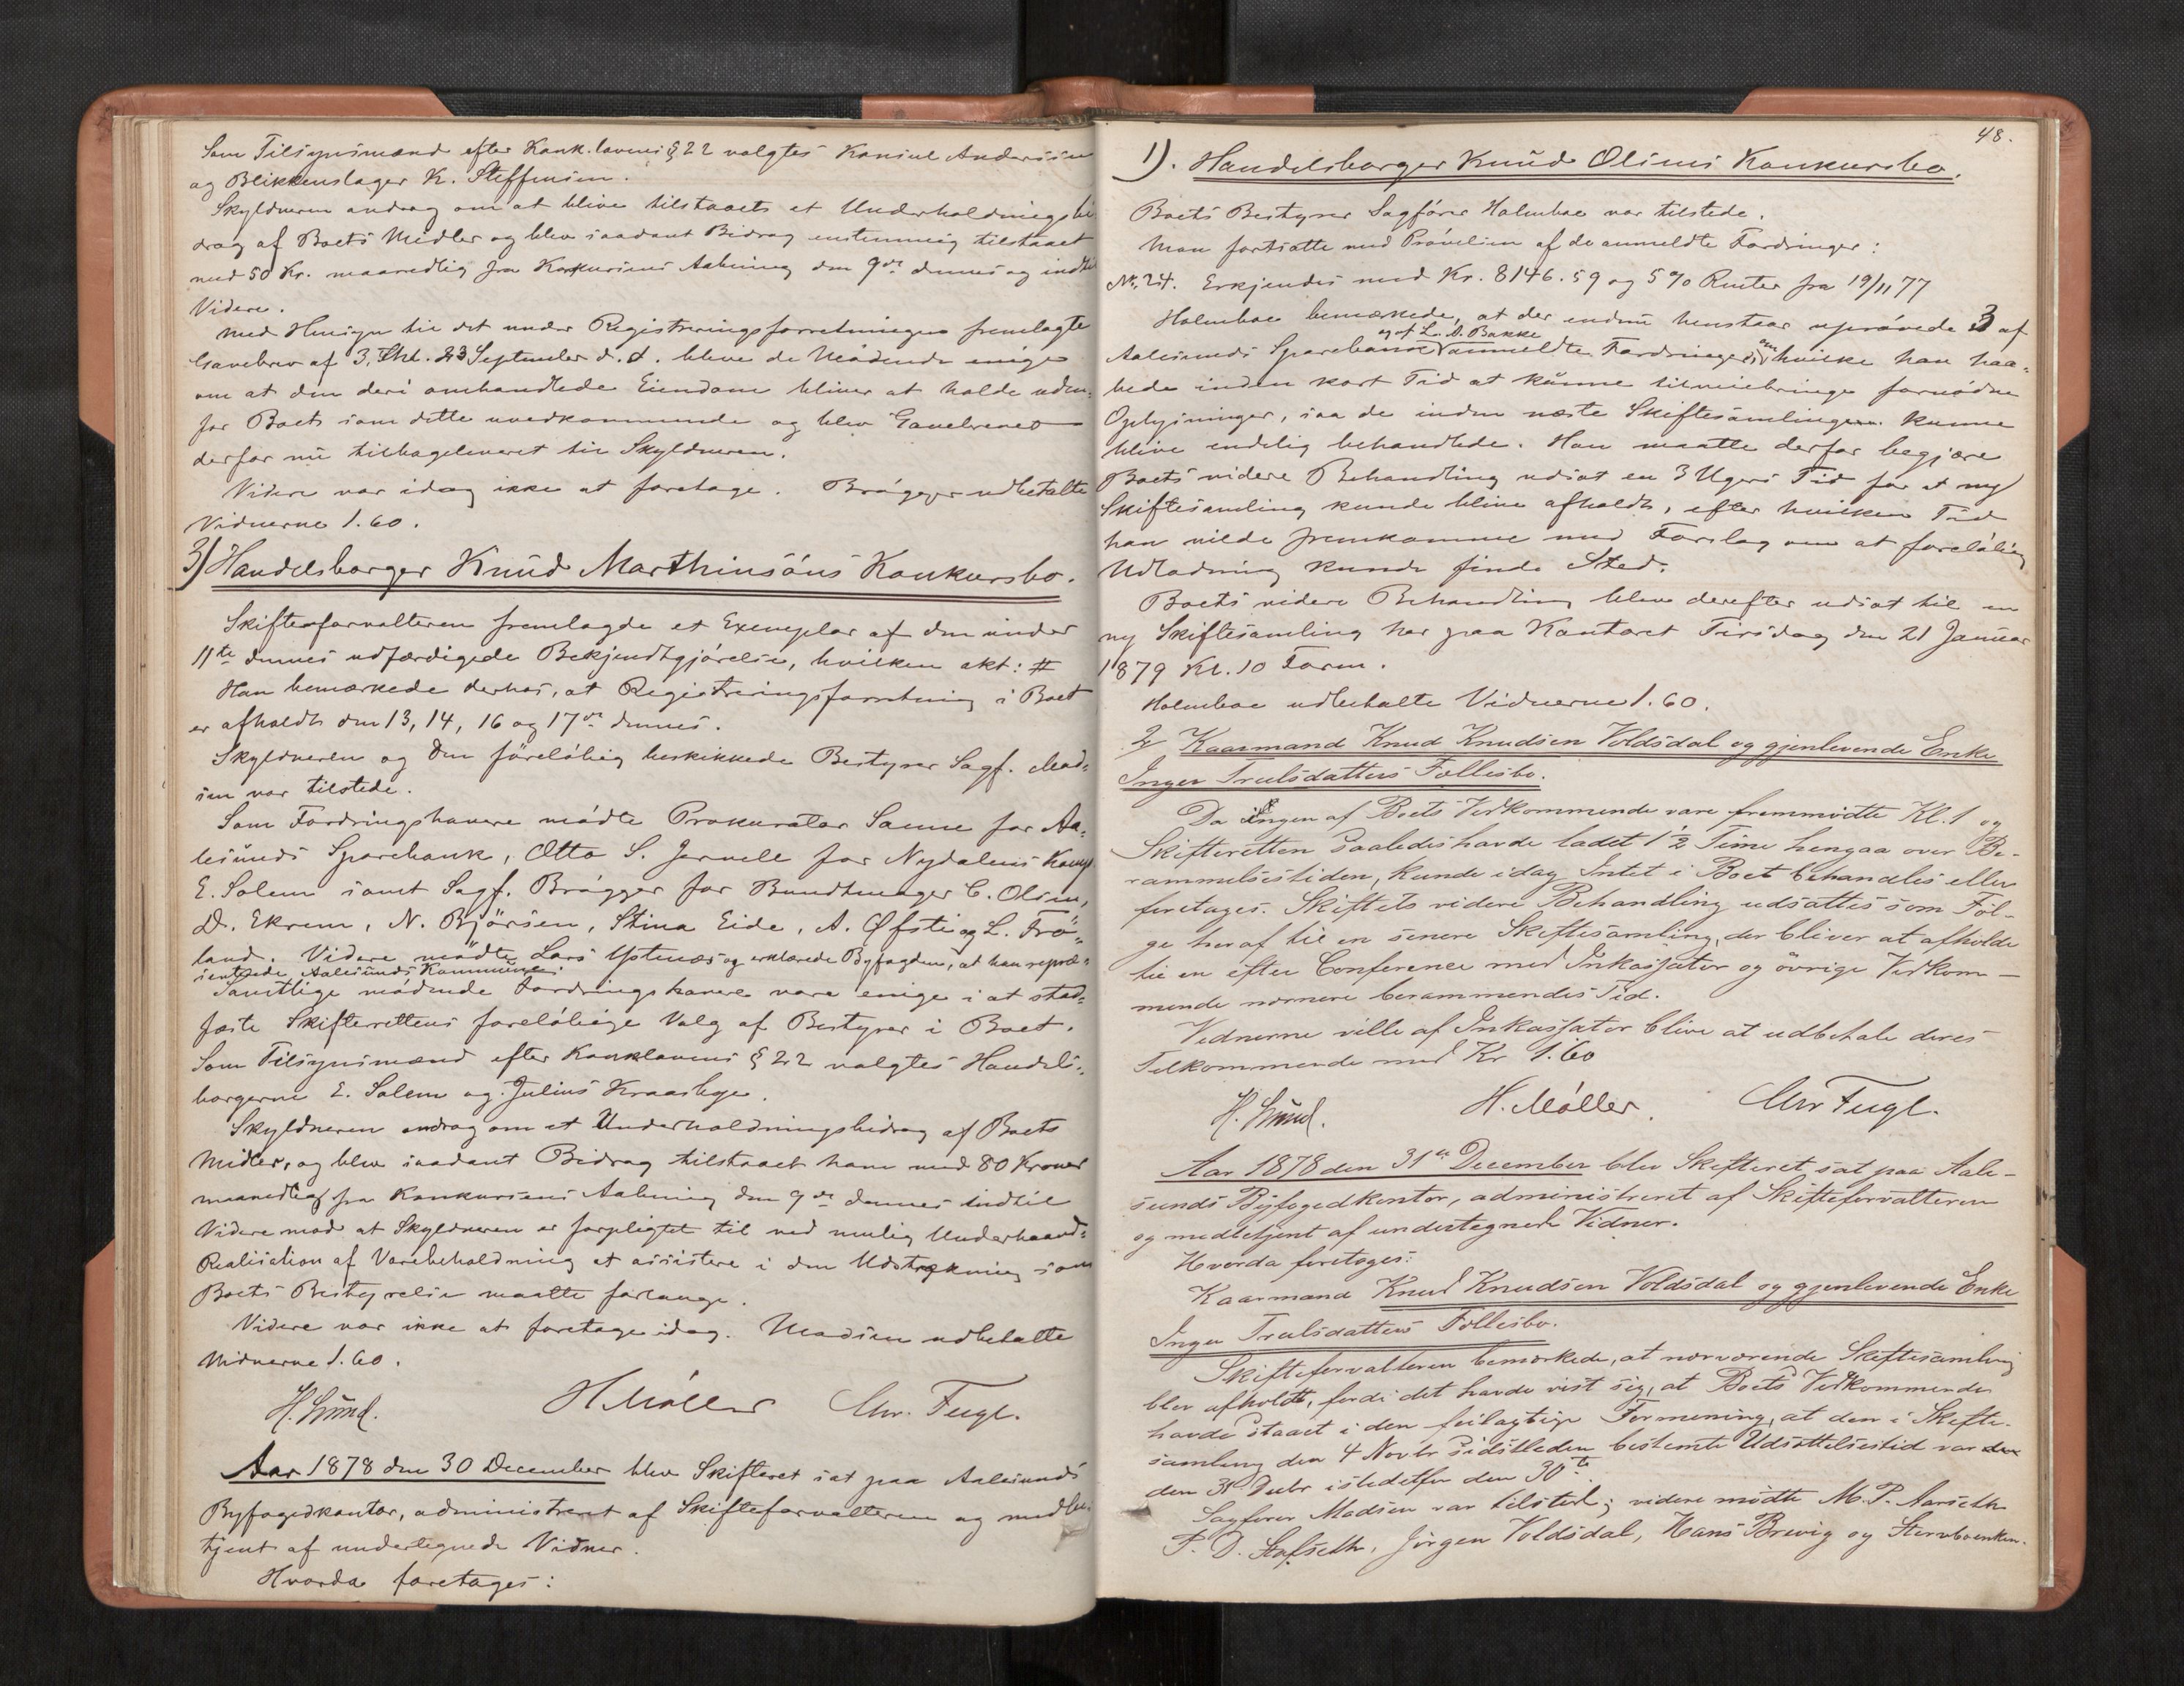 Som Tilsynsmænd efter Konk.lovens § 22 valgtes Konsul Anderssen
og Blikkenslager K. Steffensen.
Skyldneren androg om at blive tilstaaets et Underholdningsbi
drag af Boets Midler og blev saadant Bidrag enstemmig tilstaaet
med 50 Kr. maanedlig fra Konkursens Aabning den 9de dennes og indtil
Videre.
Med Hensyn til det under Registreringsforretningen fremlagte
Gavebrev af 3, Thl. 23 September d. A. bleve de Mødende enige
om at den deri omhandlede Eiendom bliver at holde uden-
for Boets som dette uvedkommende og blev Gavebrevet
derfor nu tilbageleveret til Skyldneren.
Videre var idag ikke at foretage. Brøgger udbetalte
Vidnerne 1.60.
3) Handelsborger Knud Marthinsøns Konkursbo.
Skifteforvalteren fremlagde et Exemplar af den under
11te dennes udfærdigede Bekjendtgjørelse, hvilken akt: #
Han bemærkede derhos, at Registreringsforretning i Boet
er afholdt den 13, 14, 16 og 17de dennes.
Skyldneren og den foreløbig beskikkede Bestyrer Sagf. Mad-
sen var tilstede.
Som Fordringshavere mødte Prokurator Sanne for Aa-
lesunds Sparebank, Otto S. Jervell for Nydalens Komp
E. Solem samt Sagf. Brøgger for Bundtmager C. Olsen,
D. Ekrem, N. Bjørsen, Stina Eide, A. Øfsti og L. Frø-
land. Videre mødte Lars Ystenæs og erklærede Byfogden, at han repræ-
senterede Aalesunds Kommune.
Samtlige mødende Fordringshavere vare enige i at stad-
fæste Skifterettens foreløbige Valg af Bestyrer i Boet.
Som Tilsynsmænd efter Konklovens § 22 valgtes Handels-
borgerne E. Solem og Julius Kraasbye.
Skyldneren androg om et Underholdningsbidrag af Boets
Midler, og blev saadant Bidrag tilstaaet ham med 80 Kroner
maanedlig fra Konkursens Aabning den 9de dennes indtil
Videre mod at Skyldneren er forpligtet til ved mulig Underhaands-
Realisation af Varebeholdning at assistere i den Udstrækning som
Boets Bestyrelse maatte forlange.
Videre var ikke at foretage idag. Madsen udbetalte
Vidnerne 1.60.
H. Lund. H Møller Chr. Fugl.
Aar 1878 den 30 December blev Skifteret sat paa Aalesunds
Byfogedkontor, administreret af Skifteforvalteren og medbe-
tjent af undertegnede Vidner.
Hvorda foretages:
48.
1). Handelsborger Knud Olsens Konkursbo.
Boets Bestyrer Sagfører Holmboe var tilstede.
Man fortsatte med Prøvelsen af de anmeldte Fordringer:
No. 24. Erkjendes med Kr. 8146.59 og 5% Renter fra 19/11 77
Holmboe bemærkede, at der endnu henstaar uprøvede 3 af
og af L. A. Bakke om
Aalesunds Sparebank anmeldte Fordringer, hvilke han haa-
bede inden kort Tid at kunne tilveiebringe fornødne
Oplysninger, saa de inden næste Skiftesamlingen kunne
blive endelig behandlede. Han maatte derfor begjære
Boets videre Behandling udsat en 3 Ugers Tid for at ny
Skiftesamling kunde blive afholdt, efter hvilken Tid
han vilde fremkomme med Forslag om at foreløbig
Udlodning kunde finde Sted.
Boets videre Behandling blev derefter udsat til en
ny Skiftesamling her paa Kontoret Tirsdag den 21 Januar
1879 Kl. 10 Form.
Holmboe udbetalte Vidnerne 1.60.
2/ Kaarmand Knud Knudsen Voldsdal og gjenlevende Enke
Inger Trulsdatters Fællesbo.
Da Ingen af Boets Vedkommende vare fremmødte Kl. 1 og
Skifteretten saaledes havde ladet 1 1/2 Time hengaa over Be-
rammelsestiden, kunde idag Intet i Boet behandles eller
foretages. Skiftets videre Behandling udsattes som Føl-
ge heraf til en senere Skiftesamling, der bliver at afholde
til en efter Conference med Inkassator og øvrige Vedkom-
mende nærmere berammendes Tid.
Vidnerne ville af Inkassator blive at udbetale deres
Tilkommende med Kr 1.60
H. Lund. H. Møller. Chr Fugl.
Aar 1878 den 31te December blev Skifteret sat paa Aale-
sunds Byfogedkontor, administreret af Skifteforvalteren
og medbetjent af undertegnede Vidner.
Hvorda foretoges:
Kaarmand Knud Knudsen Voldsdal og gjenlevende Enke
Inger Trulsdatters Fællesbo.
Skifteforvalteren bemærkede, at nærværende Skiftesamling
blev afholdt, fordi det havde vist sig, at Boets Vedkommende
havde staaet i den feilagtige Formening, at den i Skifte-
samling den 4 Novbr sidstleden bestemte Udsættelsestid var den
den 31 Decbr istedetfor den 30te.
Sagfører Madsen var tilsted; videre mødte M. P. Aarseth
P. D. Stafseth, Jørgen Voldsdal, Hans Brevig og Stervboenken.